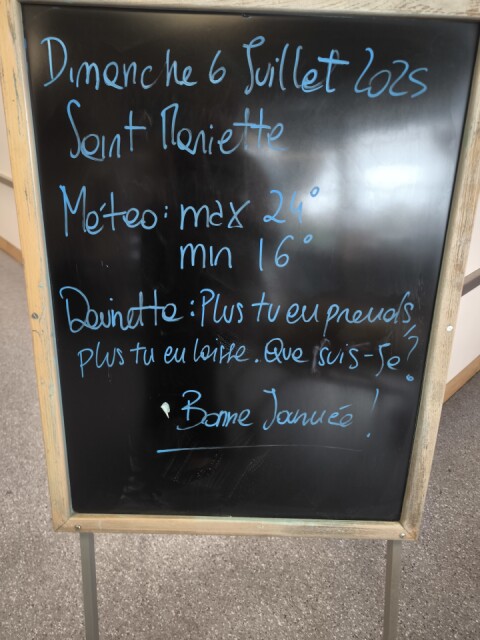 Dimanche 6 Juillet 2025
Saint Mariette
Méteo : max 24°
min 16°
Devinette : Plus tu en prends,
plus tu en laisse. Que suis-Je ?
Bonne Journée !